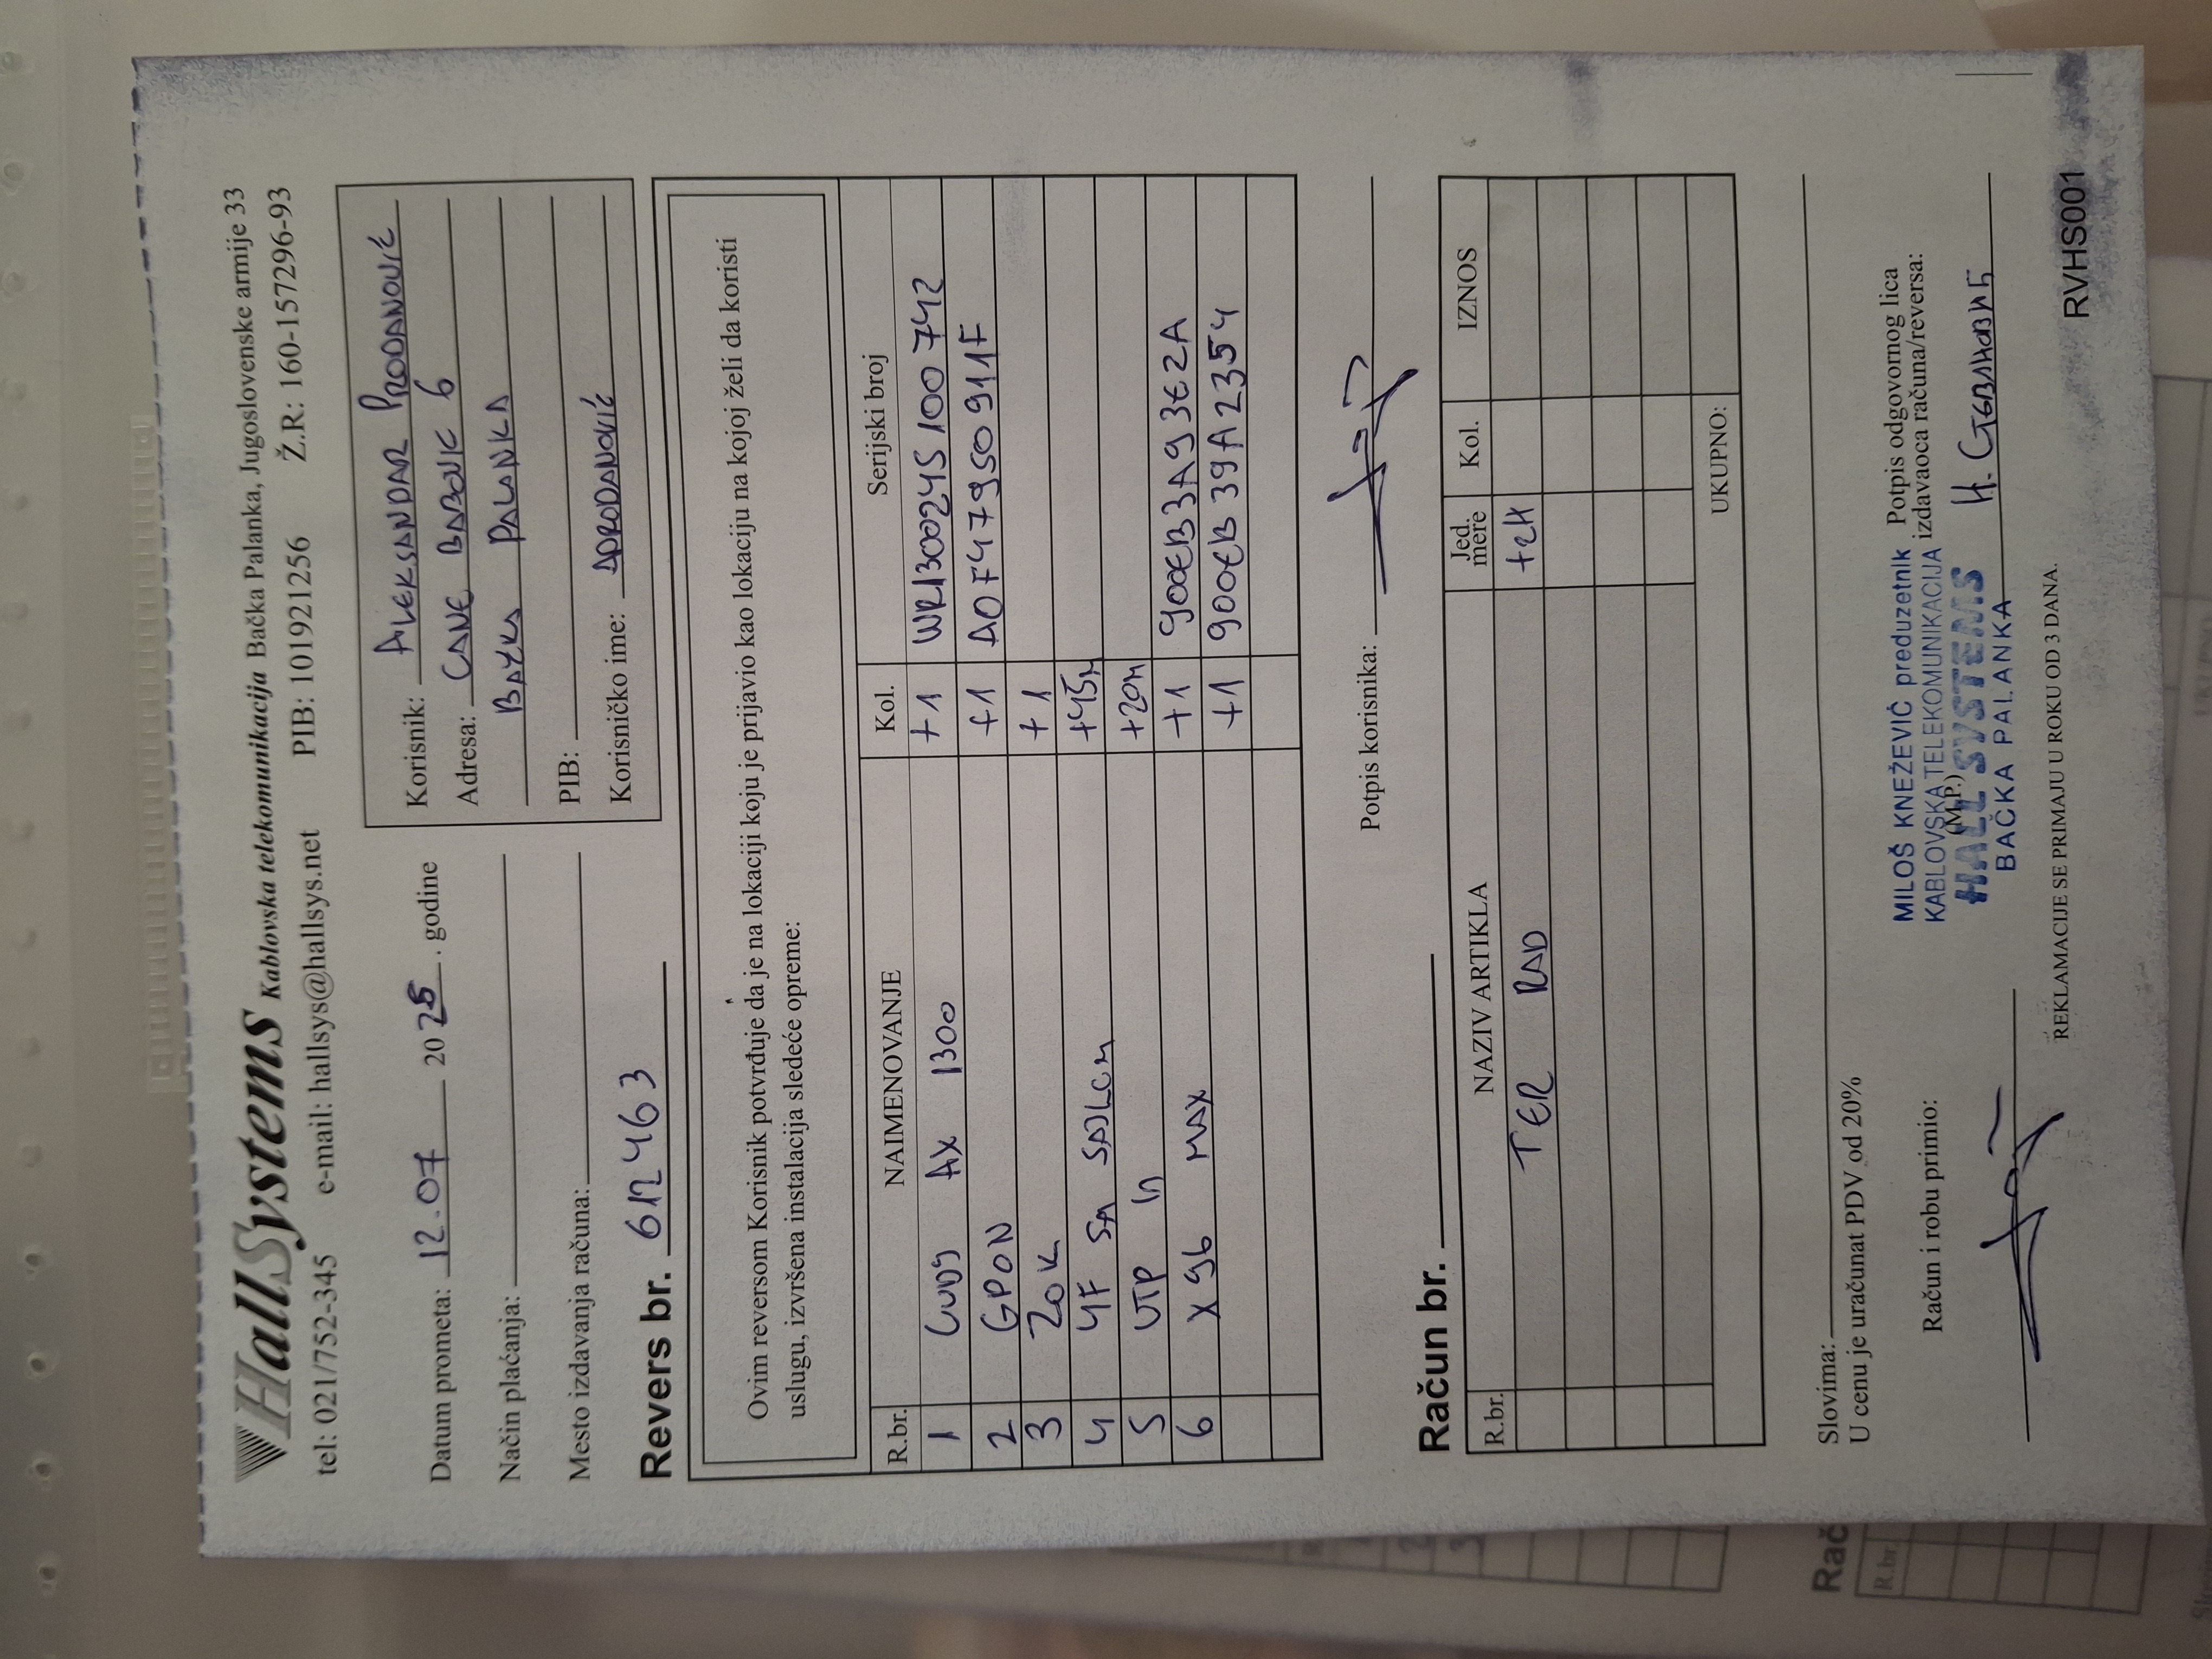 HallSystems Kablovska telekomunikacija Bačka Palanka, Jugoslovenske armije 33
tel: 021/752-345 e-mail: hallsys@hallsys.net PIB: 101921256 Ž.R: 160-157296-93
Datum prometa: 12.07 2025. godine
Način plaćanja:
Mesto izdavanja računa:
Korisnik: ALEKSANDAR PRODANOVIĆ
Adresa: CANE BABOVIC 6
BAČKA PALANKA
PIB:
Korisničko ime: APRODANOVIĆ
Revers br. 612463
Ovim reversom Korisnik potvrđuje da je na lokaciji koju je prijavio kao lokaciju na kojoj želi da koristi
uslugu, izvršena instalacija sledeće opreme:
R.br. NAIMENOVANJE Kol. Serijski broj
1 CUDY AX 1300 +1 WR13002451007412
2 GPON +1 A0F47950911F
3 ZOK +1
4 4F SA SAJLOM +45m
5 UTP +20m
6 X96 MAX +1 900EB3A93E2A
+1 900EB39A2354
Potpis korisnika:
Račun br.
R.br. NAZIV ARTIKLA Jed. mere Kol. IZNOS
TER RAD
UKUPNO:
Slovima:
U cenu je uračunat PDV od 20%
Račun i robu primio:
MILOŠ KNEŽEVIĆ preduzetnik
KABLOVSKA TELEKOMUNIKACIJA
(M.P.)
HALL SYSTEMS
BAČKA PALANKA
Potpis odgovornog lica
izdavaoca računa/reversa:
REKLAMACIJE SE PRIMAJU U ROKU OD 3 DANA.
RVHS001
Rač
R.br.